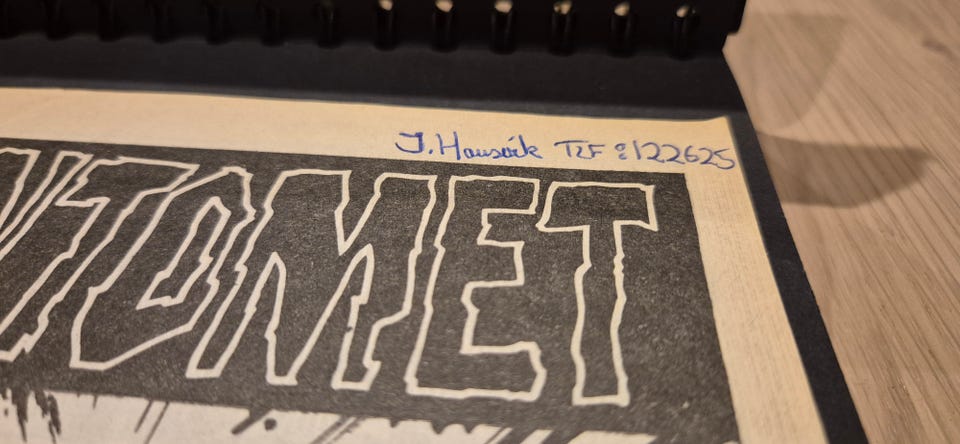 J. Hausvik TLF: 122625
NTOMET